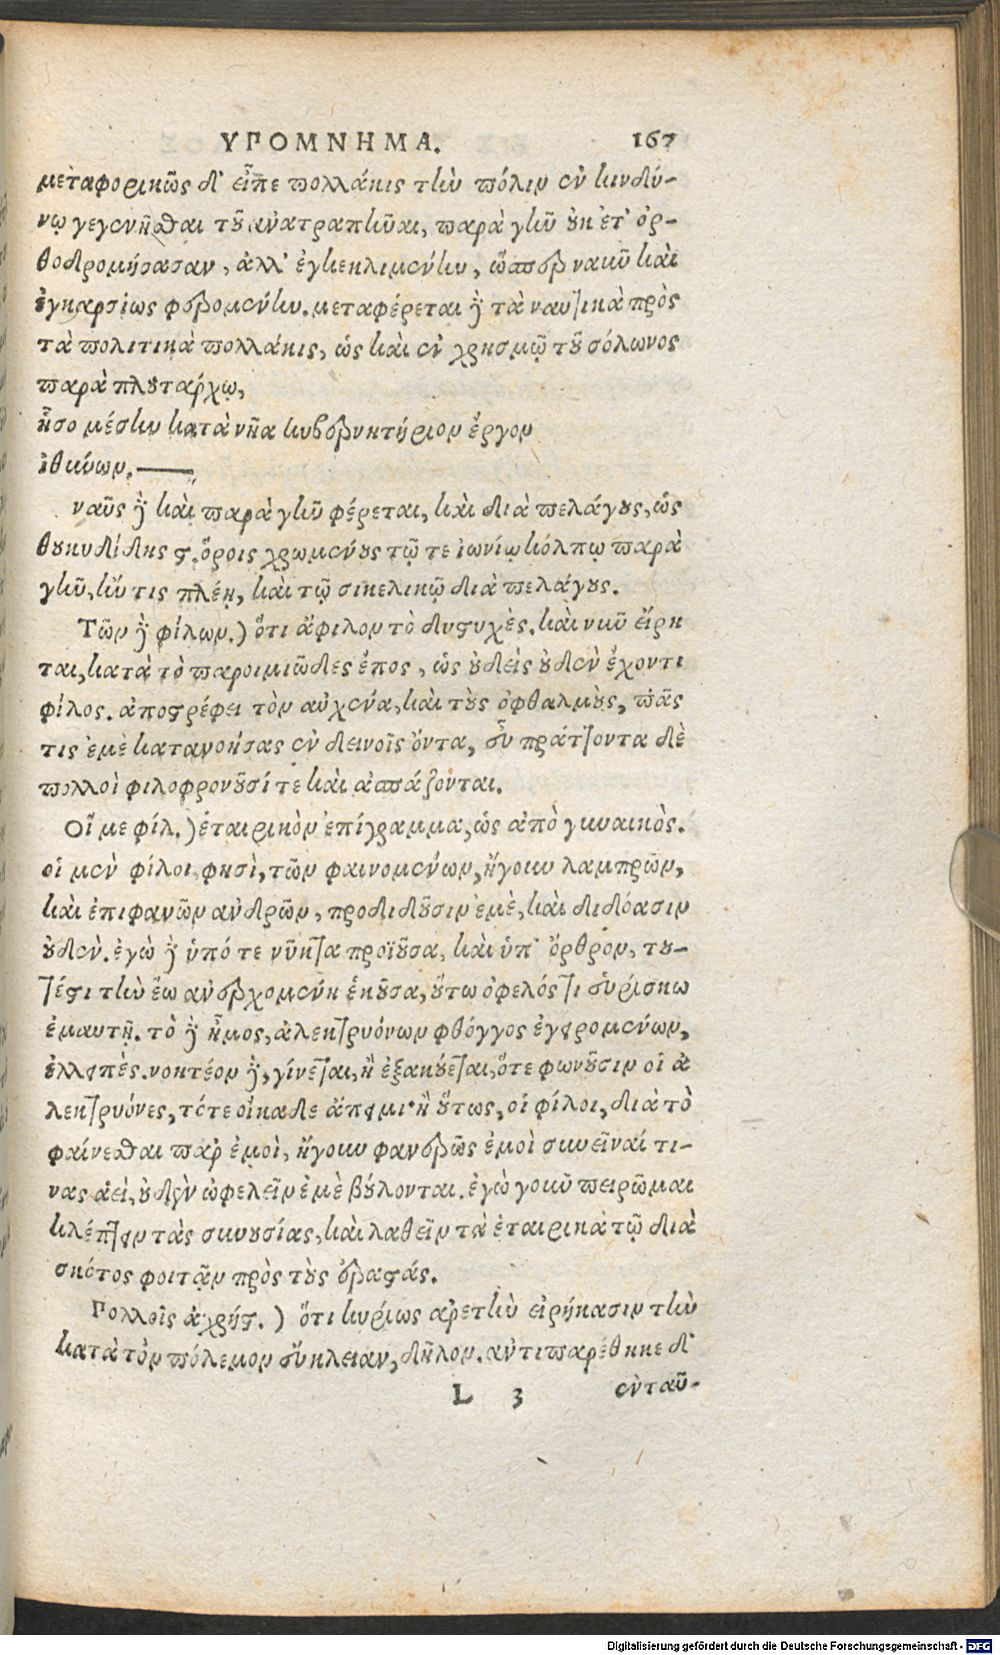 ΥΠΟΜΝΗΜΑ. 167
μεταφορικῶς δ' εἶπε πολλάκις τὴν πόλιν ἐν κινδύ-
νῳ γεγενῆσθαι τοῦ ἀνατραπῆναι, παρὰ γῆν οὐκ ἔτ' ὀρ-
θοδρομήσασαν, ἀλλ' ἐγκεκλιμένην, ὥσπερ ναῦν καὶ
ἐγκαρσίως φερομένην. μεταφέρεται δὲ τὰ ναυτικὰ πρὸς
τὰ πολιτικὰ πολλάκις, ὡς καὶ ἐν χρησμῷ τοῦ σόλωνος
παρὰ πλουτάρχῳ,
ἧσο μέσην κατὰ νῆα κυβερνητήριον ἔργον
ἰθύνων.——
ναῦς δὲ καὶ παρὰ γῆν φέρεται, καὶ διὰ πελάγους, ὡς
θουκυδίδης ϛ. ὅροις χρωμένους τῷ τε ἰονίῳ κόλπῳ παρὰ
γῆν, ἤν τις πλέῃ, καὶ τῷ σικελικῷ διὰ πελάγους.
Τῶν δὲ φίλων.) ὅτι ἄφιλον τὸ δυστυχές. καὶ νῦν εἴρη
ται, κατὰ τὸ παροιμιῶδες ἔπος, ὡς οὐδεὶς οὐδὲν ἔχοντι
φίλος. ἀποστρέφει τὸν αὐχένα, καὶ τοὺς ὀφθαλμοὺς, πᾶς
τις ἐμὲ κατανοήσας ἐν δεινοῖς ὄντα, εὖ πράττοντα δὲ
πολλοὶ φιλοφρονοῦσί τε καὶ ἀσπάζονται.
Οἵ με φίλ.) ἑταιρικὸν ἐπίγραμμα, ὡς ἀπὸ γυναικός.
οἱ μὲν φίλοι, φησὶ, τῶν φαινομένων, ἤγουν λαμπρῶν,
καὶ ἐπιφανῶν ἀνδρῶν, προδιδοῦσιν ἐμὲ, καὶ διδόασιν
οὐδέν. ἐγὼ δὲ ὑπό τε νύκτα προϊοῦσα, καὶ ὑπ' ὄρθρον, του-
τέστι τὴν ἕω ἀνερχομένη ἑκοῦσα, οὕτω ὀφελός τι εὑρίσκω
ἐμαυτῇ. τὸ δὲ ἦμος, ἀλεκτρυόνων φθόγγος ἐγειρομένων,
ἐλλειπές. νοητέον δὲ, γίνεται, ἢ ἐξακούεται, ὅτε φωνοῦσιν οἱ ἀ
λεκτρυόνες, τότε οἴκαδε ἄπειμι· ἢ οὕτως, οἱ φίλοι, διὰ τὸ
φαίνεσθαι παρ' ἐμοὶ, ἤγουν φανερῶς ἐμοὶ συνεῖναί τι-
νας ἀεὶ, οὐδὲν ὠφελεῖν ἐμὲ βούλονται. ἐγὼ γοῦν πειρῶμαι
κλέπτειν τὰς συνουσίας, καὶ λαθεῖν τὰ ἑταιρικὰ τῷ διὰ
σκότος φοιτᾷν πρὸς τοὺς ἐραστάς.
Πολλοῖς ἀχρήστ.) ὅτι κυρίως ἀρετὴν εἰρήκασιν τὴν
κατὰ τὸν πόλεμον εὔκλειαν, δῆλον. ἀντιπαρέθηκε δ'
L 3 ἐνταῦ-
Digitalisierung gefördert durch die Deutsche Forschungsgemeinschaft - DFG